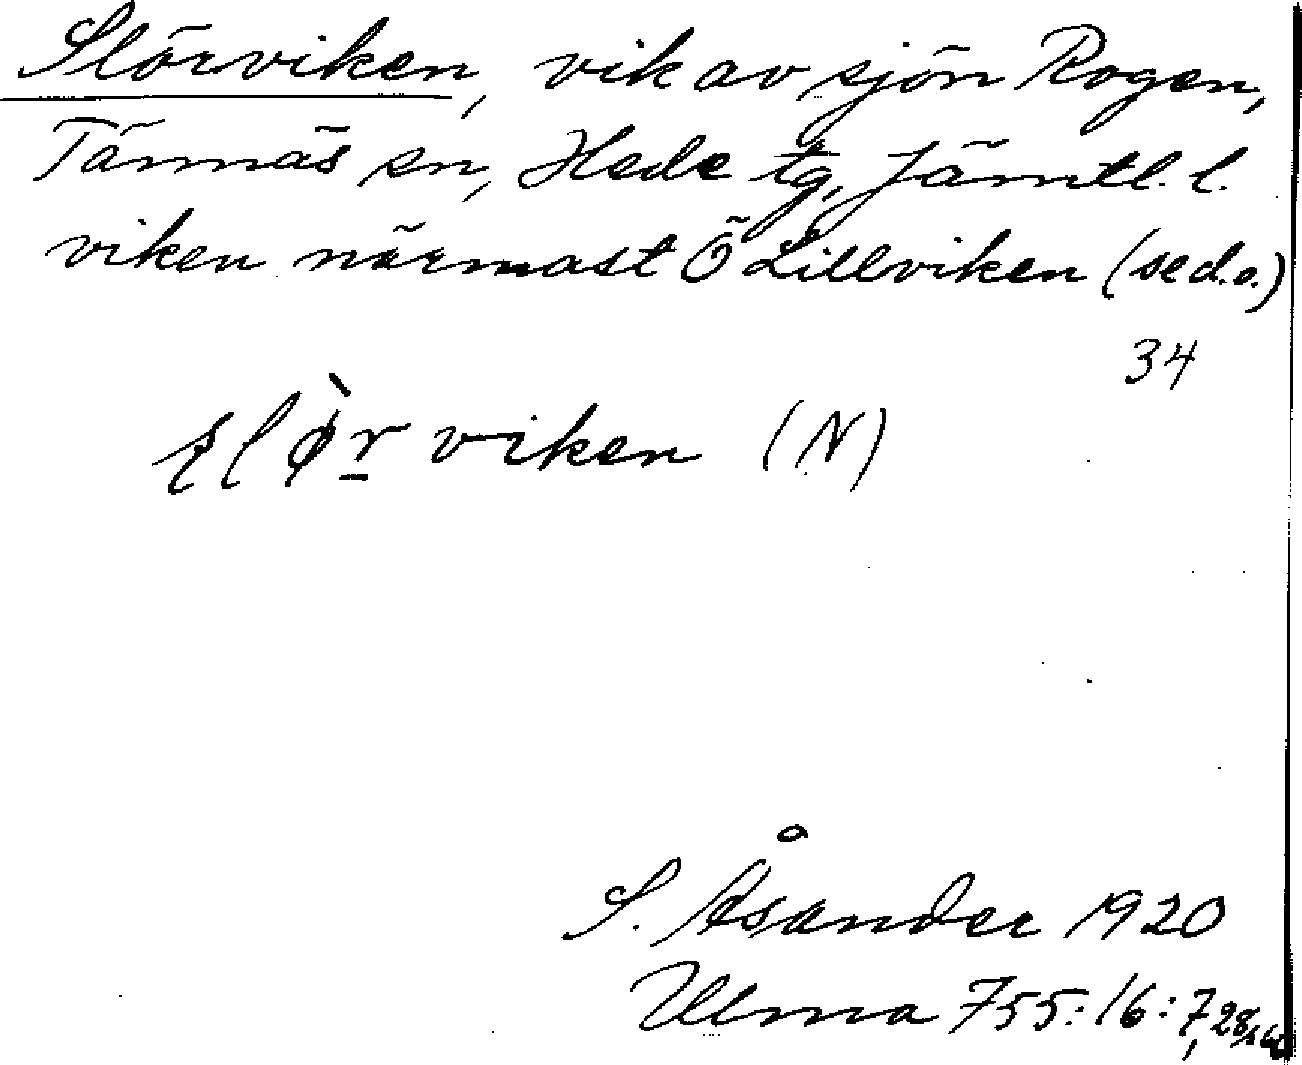 Slörviken, vik av sjön Rogen,
Tännäs sn, Hede tg, Jämtl. l.
viken närmast Ö Lillviken (se d.o.)
34
slø̀r viken (N)
S. Åsander 1920
Ulma 755:16:7, 28/1